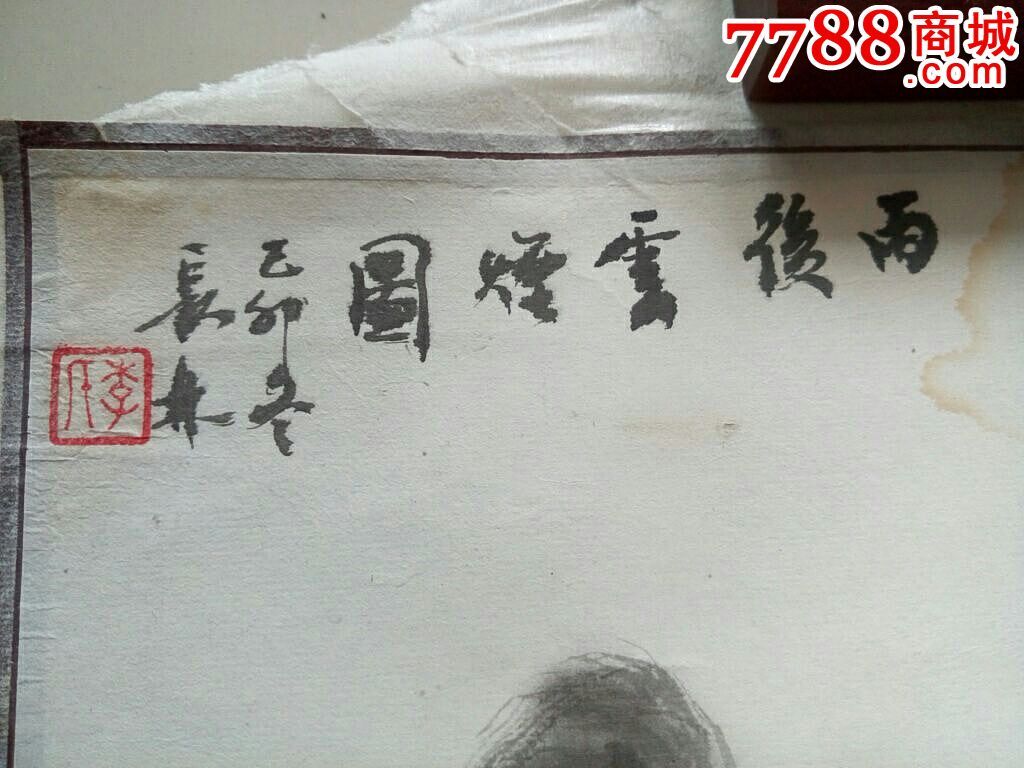 7788商城
.com
雨後雲煙圖
己卯冬
長林
李